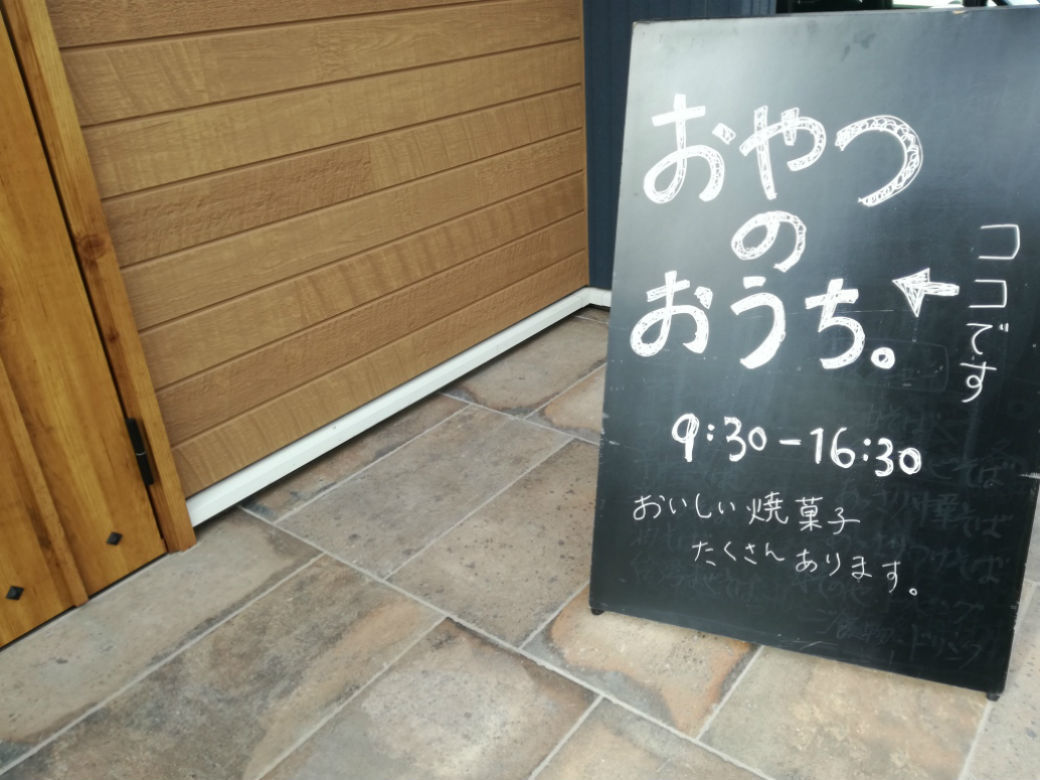 おやつ
の
おうち。
ココです
9:30-16:30
おいしい焼菓子
たくさんあります。